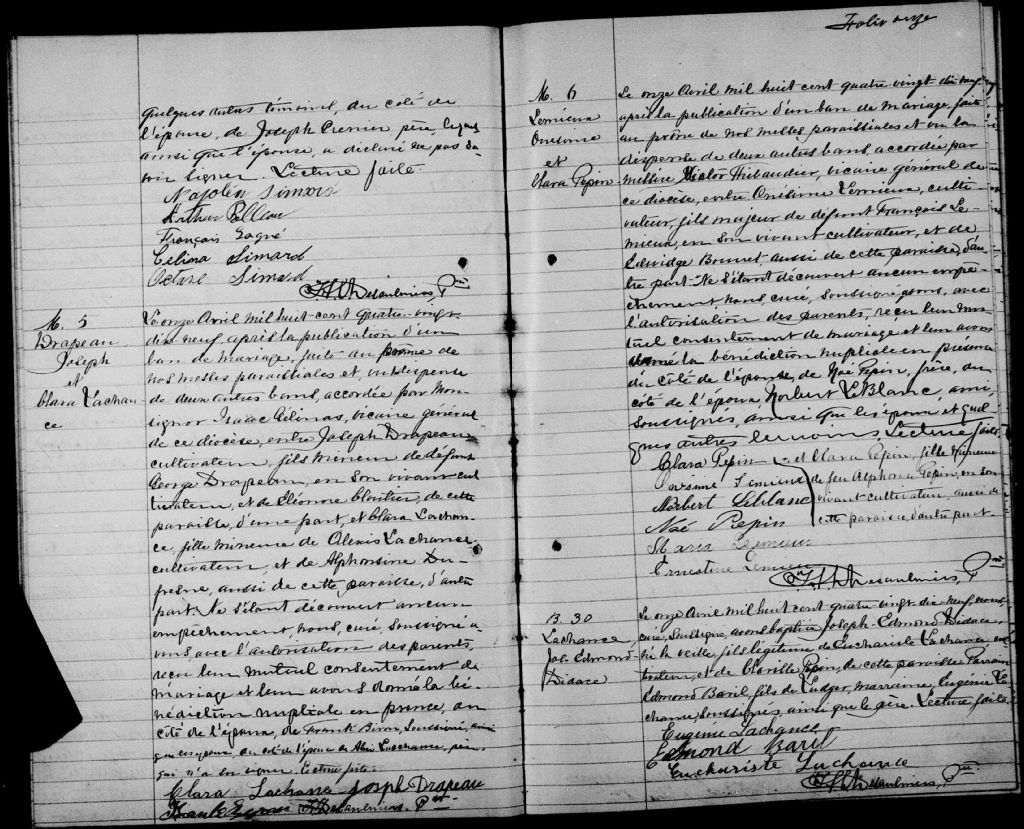 Folio onze
quelques autres témoins, du coté de
l'épouse, de Joseph père, lequel
ainsi que l'épouse, a déclaré ne pas sa-
voir signer. Lecture faite.
Napoléon Simard
Arthur
François Gagné
Celina Simard
Octave Simard
Desaulniers, Ptre
M. 5
Drapeau
Joseph
et
Clara Lachan
ce
Le onze Avril mil huit-cent quatre-vingt-
dix-neuf, après la publication d'un
ban de mariage, faite au prône de
nos messes paroissiales et, vu dispense
de deux autres bans, accordée par Mon-
signor Isaac Gélinas, vicaire général
de ce diocèse, entre Joseph Drapeau,
cultivateur, fils mineur de défunt
George Drapeau, en son vivant cul-
tivateur, et de Eléonore Cloutier, de cette
paroisse, d'une part, et Clara Lachan-
ce, fille mineure de Alexis Lachance,
cultivateur, et de Alphonsine Du-
fresne, aussi de cette paroisse, d'autre
part. Ne s'étant découvert aucun
empêchement, nous, curé, soussigné a-
vons, avec l'autorisation des parents,
reçu leur mutuel consentement de
mariage et leur avons donné la bé-
nédiction nuptiale en présence, du
côté de l'époux, de Frank Biron, soussigné, ainsi
que les époux, du coté de l'épouse de Alexis Lachance, père
qui n'a su signer. Lecture faite.
Clara Lachance Joseph Drapeau
Desaulniers, Ptre
M. 6
Lemieux
Onésime
et
Clara Pepin
Le onze Avril mil huit cent quatre-vingt-dix-neuf,
après la publication d'un ban de mariage, faite
au prône de nos messes paroissiales et vu la
dispense de deux autres bans, accordée par
messire Hector Thibaudier, vicaire général de
ce diocèse, entre Onésime Lemieux, culti-
vateur, fils majeur de défunt François Le-
mieux, en son vivant cultivateur, et de
Edwidge aussi de cette paroisse, d'au-
tre part. Ne s'étant découvert aucun empê-
chement, nous, curé, soussigné, avons, avec
l'autorisation des parents, reçu leur mu-
tuel consentement de mariage et leur avons
donné la bénédiction nuptiale en présence
du côté de l'épouse, de Noé Pepin, frère, du
côté de l'époux Norbert LeBlanc, ami,
soussignés, ainsi que les époux et quel-
ques autres témoins, Lecture faite.
Clara Pepin et Clara Pepin, fille mineure
Onesime Lemieux de feu Alphonse Pepin, en son
Norbert Leblanc vivant cultivateur, aussi de
Noé Pepin cette paroisse, d'autre part
Maria Lemieux
Ernestine Lemieux
Desaulniers, Ptre
B. 30
Lachance
Jos. Edmond-
Didace
Le onze Avril mil huit cent quatre vingt dix neuf, nous,
curé, soussigné, avons baptisé Joseph-Edmond-Didace,
né la veille, fils légitime de Euchariste Lachance, cul-
tivateur, et de Claville Pepin, de cette paroisse. Parrain
Edmond Baril, fils de Ludger, marraine, Eugénie La-
chance, soussignés, ainsi que le père. Lecture faite.
Eugenie Lachance
Edmond Baril
Euchariste Lachance
Desaulniers, Ptre